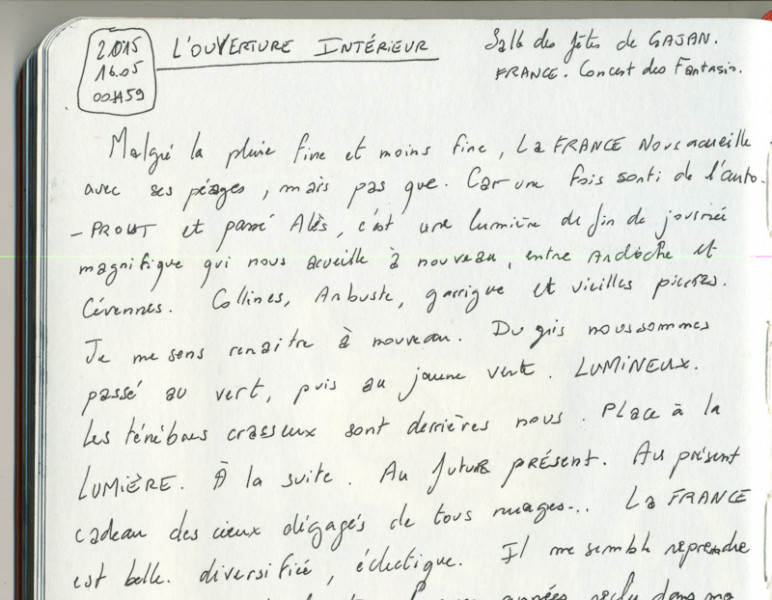 2015
16.05
00H59
L'OUVERTURE INTÉRIEUR
Salle des fêtes de GAJAN.
FRANCE. Concert des Fantasin.
Malgré la pluie fine et moins fine, La FRANCE Nous acueille
avec ses péages, mais pas que. Car une fois sorti de l'auto-
-PROUT et passé Alès, c'est une lumière de fin de journée
magnifique qui nous acueille à nouveau, entre Ardèche et
Cévennes. Collines, Arbuste, garrigue et vieilles pierres.
Je me sens renaitre à nouveau. Du gris nous sommes
passé au vert, puis au jaune vert. LUMINEUX.
Les ténébres crasseux sont derrières nous. Place à la
LUMIÈRE. À la suite. Au futur PRÉSENT. Au présent
cadeau des cieux dégagés de tous nuages... La FRANCE
est belle. diversifiée, éclectique. Il me semble reprendre
années dans ma